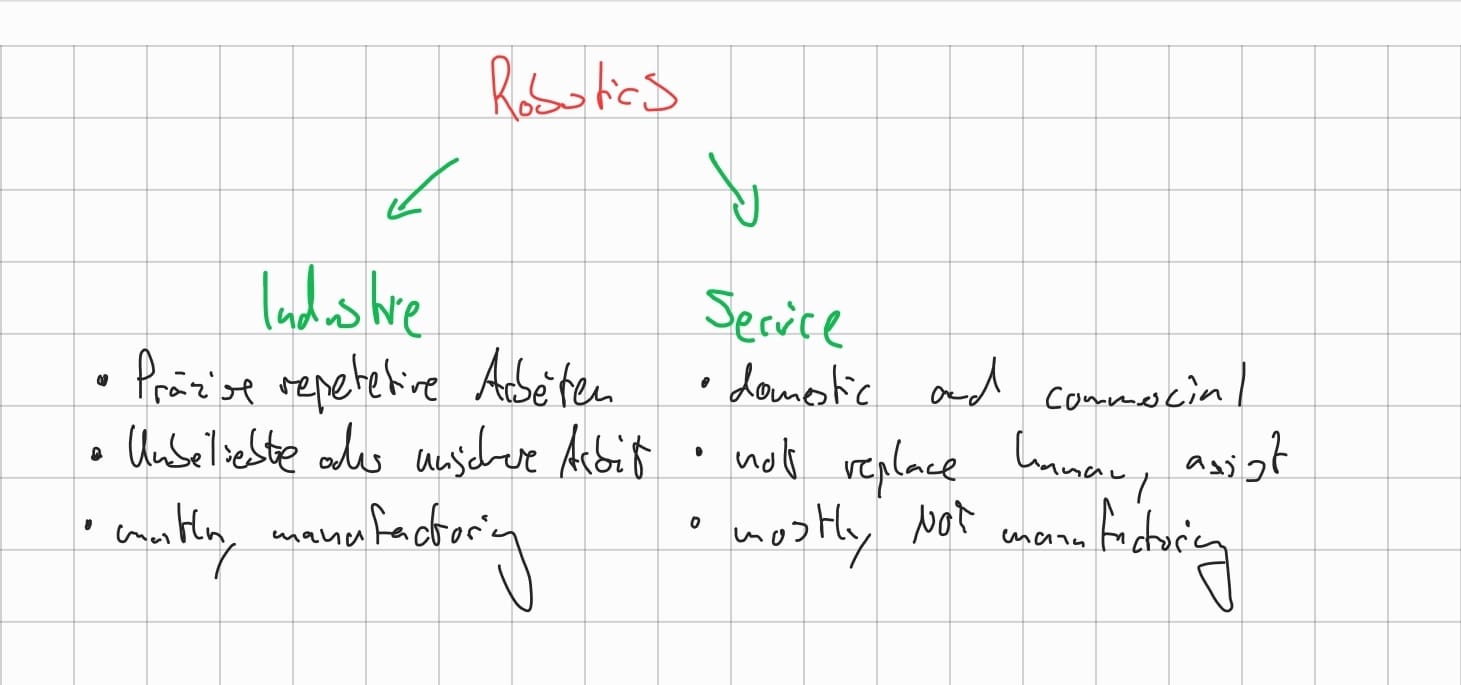 Robotics
Industrie
Service
• Präzise repetetive Arbeiten
• Unbeliebte oder unsichere Arbeit
• mostly manufactoring
• domestic and commercial
• not replace human, assist
• mostly NOT manufactoring